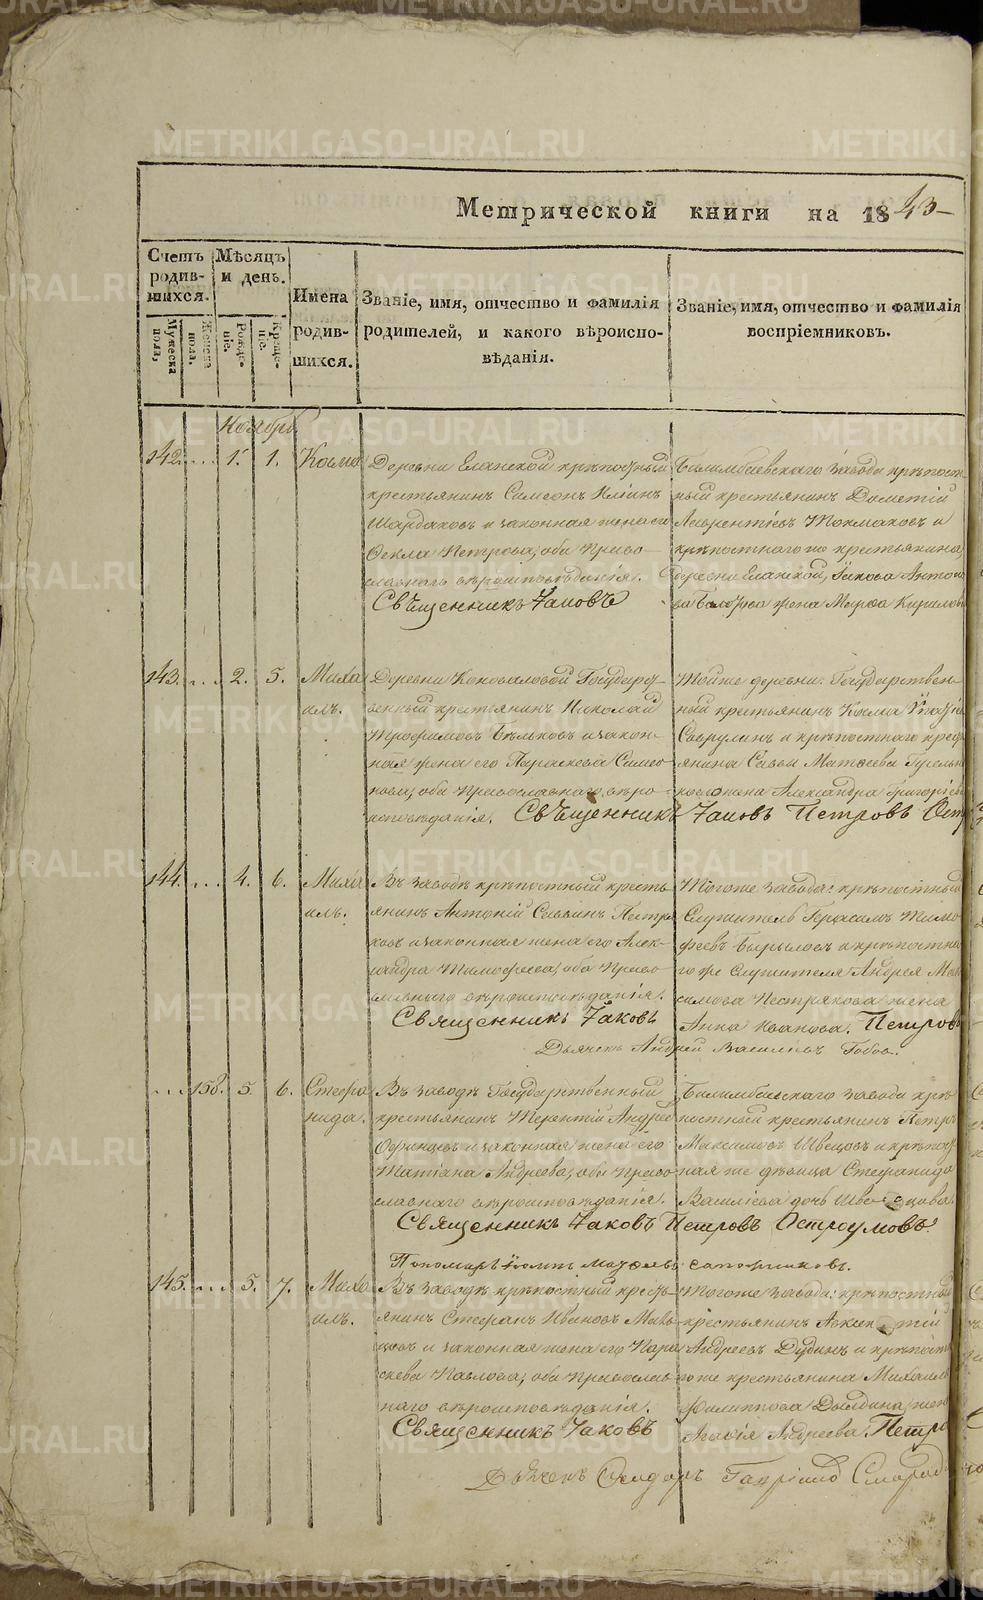 METRIKI.GASO-URAL.RU
Метрической книги на 1843
Счетъ родив-шихся.
Мужеска пола,
Женска пола,
Мѣсяцъ и день.
Рожде-ніе.
Креще-ніе.
Имена родив-шихся.
Званіе, имя, отчество и фамилія
родителей, и какого вѣроиспо-
вѣданія.
Званіе, имя, отчество и фамилія
воспріемниковъ.
Ноябрь
142. ... 1. 1. Косма
Деревни Еланской крѣпостный
крестьянинъ Симеонъ
и законная жена его
Ѳекла Петрова, оба Право-
славнаго вѣроисповѣданія.
Священникъ Іаковъ
Билимбаевскаго завода крѣпост-
ный крестьянинъ Дометій
Лаврентіевъ Токмаковъ и
крѣпостнаго крестьянина,
деревни Еланской, Іакова Антоно
жена Марѳа Кирилова
143. ... 2. 5. Миха
илъ.
Деревни Коноваловой Государст-
венный крестьянинъ Николай
Трофимовъ Бѣльковъ и закон-
ная жена его Параскева Симео-
нова, оба Православнаго вѣро-
исповѣданія. Священникъ Іаковъ Петровъ Ост
Тойже деревни Государствен-
ный крестьянинъ Косма
и крѣпостнаго крест
янина Саввы Матѳеева
жена Александра Григоріева
144. ... 4. 6. Миха
илъ.
Въ заводѣ крѣпостный кресть-
янинъ Антоній Саввинъ Пестря
ковъ и законная жена его Алек-
сандра Тимоѳеева, оба Право-
славнаго вѣроисповѣданія.
Священникъ Іаковъ
Тогоже завода: крѣпостный
Служитель Герасимъ Тимо
феевъ и крѣпостна
го же Служителя Андрея Мак
симова Пестрякова жена
Анна Иванова. Петровъ
Дьячекъ Андрей Васильевъ
... 158. 5. 6. Стефа
нида.
Въ заводѣ Государственный
крестьянинъ Терентій Андрее
и законная жена его
Татіана Андреева, оба Право-
славнаго вѣроисповѣданія.
Билимбаевскаго завода крѣ
постный крестьянинъ Петръ
Максимовъ Швецовъ и крѣпост
ная же дѣвица Стефанида
Василіева дочь Швецова
Священникъ Іаковъ Петровъ Остроумовъ.
Пономарь Сапожниковъ.
145. ... 5. 7. Миха
илъ.
Въ заводѣ крѣпостный крестъ-
янинъ Стефанъ Ивановъ
и законная жена его Пара
скева Павлова, оба Православ
наго вѣроисповѣданія.
Священникъ Іаковъ
Тогоже завода: крѣпостный
крестьянинъ Авксентій
Андреевъ Дудинъ и крѣпост
гоже крестьянина Михаила
Филиппова жена
Агаѳія Андреева. Петро
Дьячекъ Ѳеодоръ Гавріиловъ